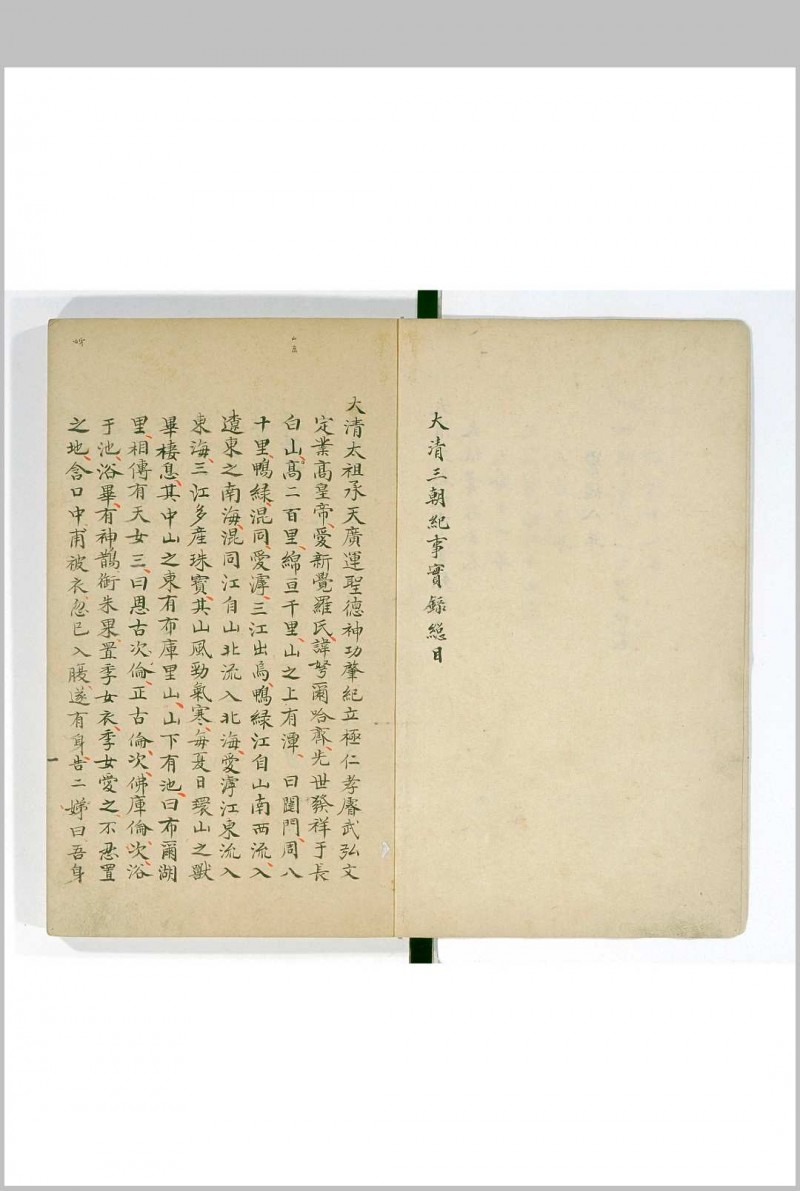 大清三朝紀事實錄總目
大清太祖承天廣運聖德神功肇紀立極仁孝睿武弘文
定業高皇帝愛新覺羅氏諱弩爾哈齊先世發祥于長
白山高二百里綿亘千里山之上有潭曰闥門周八
十里鴨綠混同愛滹三江出焉鴨綠江自山南西流入
遼東之南海混同江自山北流入北海愛滹江東流入
東海三江多產珠寶其山風勁氣寒每夏日環山之獸
畢棲息其中山之東有布庫里山山下有池曰布爾湖
里相傳有天女三曰恩古次倫正古倫次佛庫倫次浴
于池浴畢有神鵲銜朱果置季女衣季女愛之不忍置
之地含口中甫被衣忽已入腹遂有身告二娣曰吾身